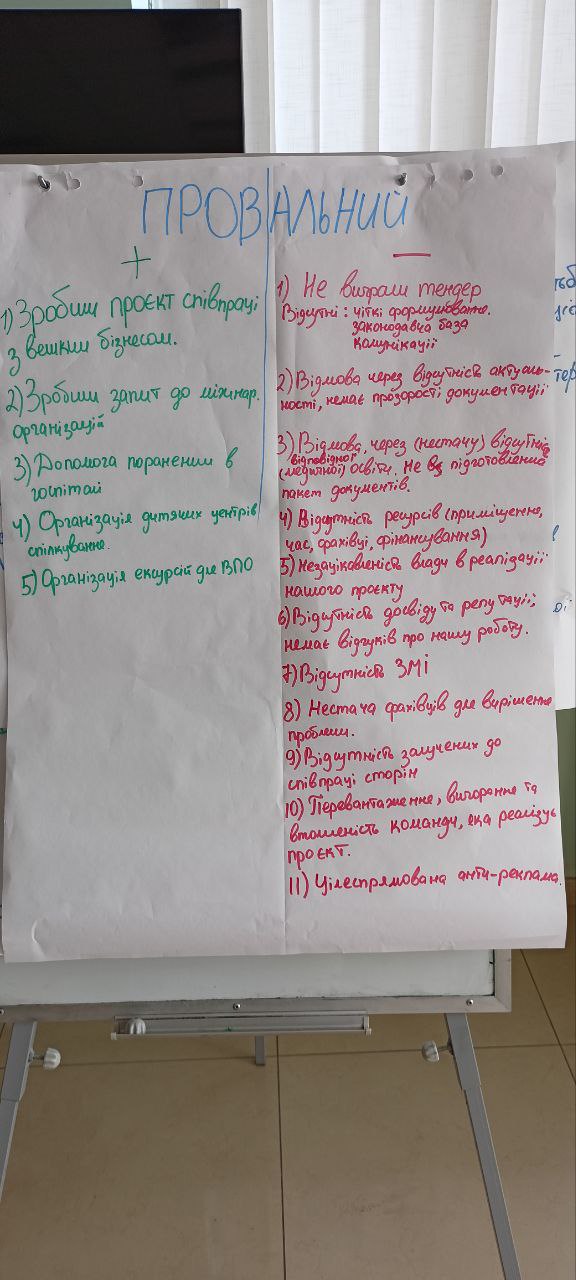 ПРОВАЛЬНИЙ
+
1) Зробили проєкт співпраці
з великим бізнесом.
2) Зробили запит до міжнар.
організацій
3) Допомога пораненим в
госпіталі
4) Організація дитячих центрів
спілкування.
5) Організація екскурсій для ВПО
—
1) Не виграли тендер
Відсутні: чіткі формулювання.
законодавча база
комунікації
2) Відмова через відсутність актуаль-
ності, немає прозорості документації
3) Відмова, через (нестачу) відсутність
відповідної
(медичної) освіти. Не підготовлений
пакет документів.
4) Відсутність ресурсів (приміщення,
час, фахівці, фінансування)
5) Незацікавленість влади в реалізації
нашого проєкту
6) Відсутність досвіду та репутації;
немає відгуків про нашу роботу.
7) Відсутність ЗМІ
8) Нестача фахівців для вирішення
проблеми.
9) Відсутність залучених до
співпраці сторін
10) Перевантаження, вигорання та
втомленість команди, яка реалізує
проєкт.
11) Цілеспрямована анти-реклама.